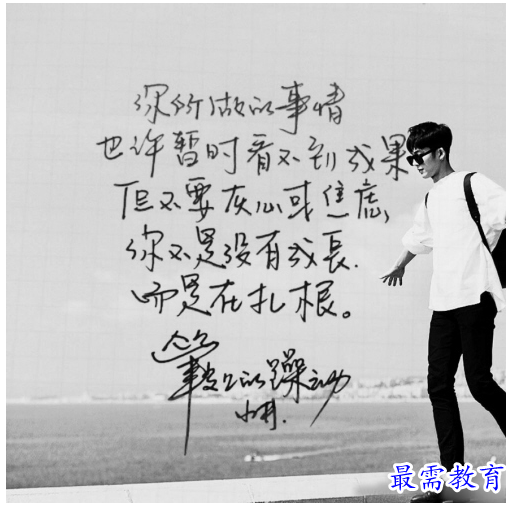 你所做的事情
也许暂时看不到成果
但不要灰心或焦虑,
你不是没有成長.
而是在扎根。
的躁动
最需教育